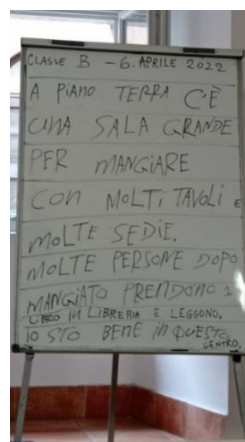 CLASSE B - 6. APRILE 2022
A PIANO TERRA C'È
UNA SALA GRANDE
PER MANGIARE
CON MOLTI TAVOLI E
MOLTE SEDIE.
MOLTE PERSONE DOPO
MANGIATO PRENDONO 1
LIBRO IN LIBRERIA E LEGGONO.
IO STO BENE IN QUESTO
CENTRO.